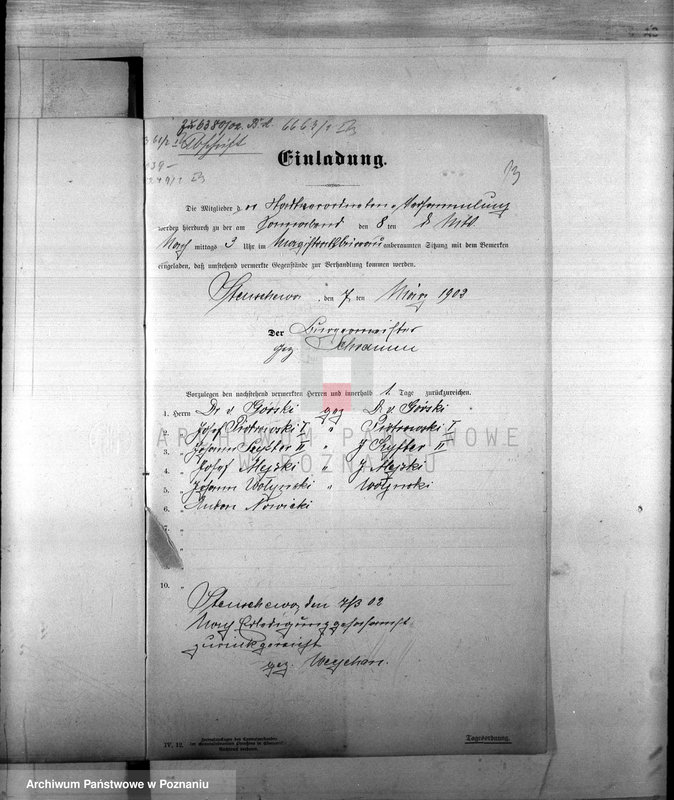 Zu 6380/02 B.d. 6663/1
Abschrift
Einladung.
73
Die Mitglieder der Stadtverordneten-Versammlung
werden hierdurch zu der am Sonnabend den 8 ten d. Mts.
Nachmittags 3 Uhr im Magistratsbureau anberaumten Sitzung mit dem Bemerken
eingeladen, daß umstehend vermerkte Gegenstände zur Verhandlung kommen werden.
Stenschewo, den 7. ten März 1902
Der Bürgermeister
gez. Schramm
Vorzulegen den nachstehend vermerkten Herren und innerhalb 1 Tage zurückzureichen.
1. Herrn Dr. v Górski gez Dr. v Górski
2. " Josef Piotrowski I " Piotrowski I
3. " Johann Szyfter II " J Szyfter II
4. " Josef " J
5. " Johann Wołynski " Wołynski
6. " Anton Nowicki
7. "
8.
9.
10. "
Stenschewo, den 7/3 02
Nach Erledigung gehorsamst
zurückgereicht
gez.
IV, 12.
Tagesordnung.
ARCHIWUM PAŃSTWOWE
W POZNANIU
Archiwum Państwowe w Poznaniu